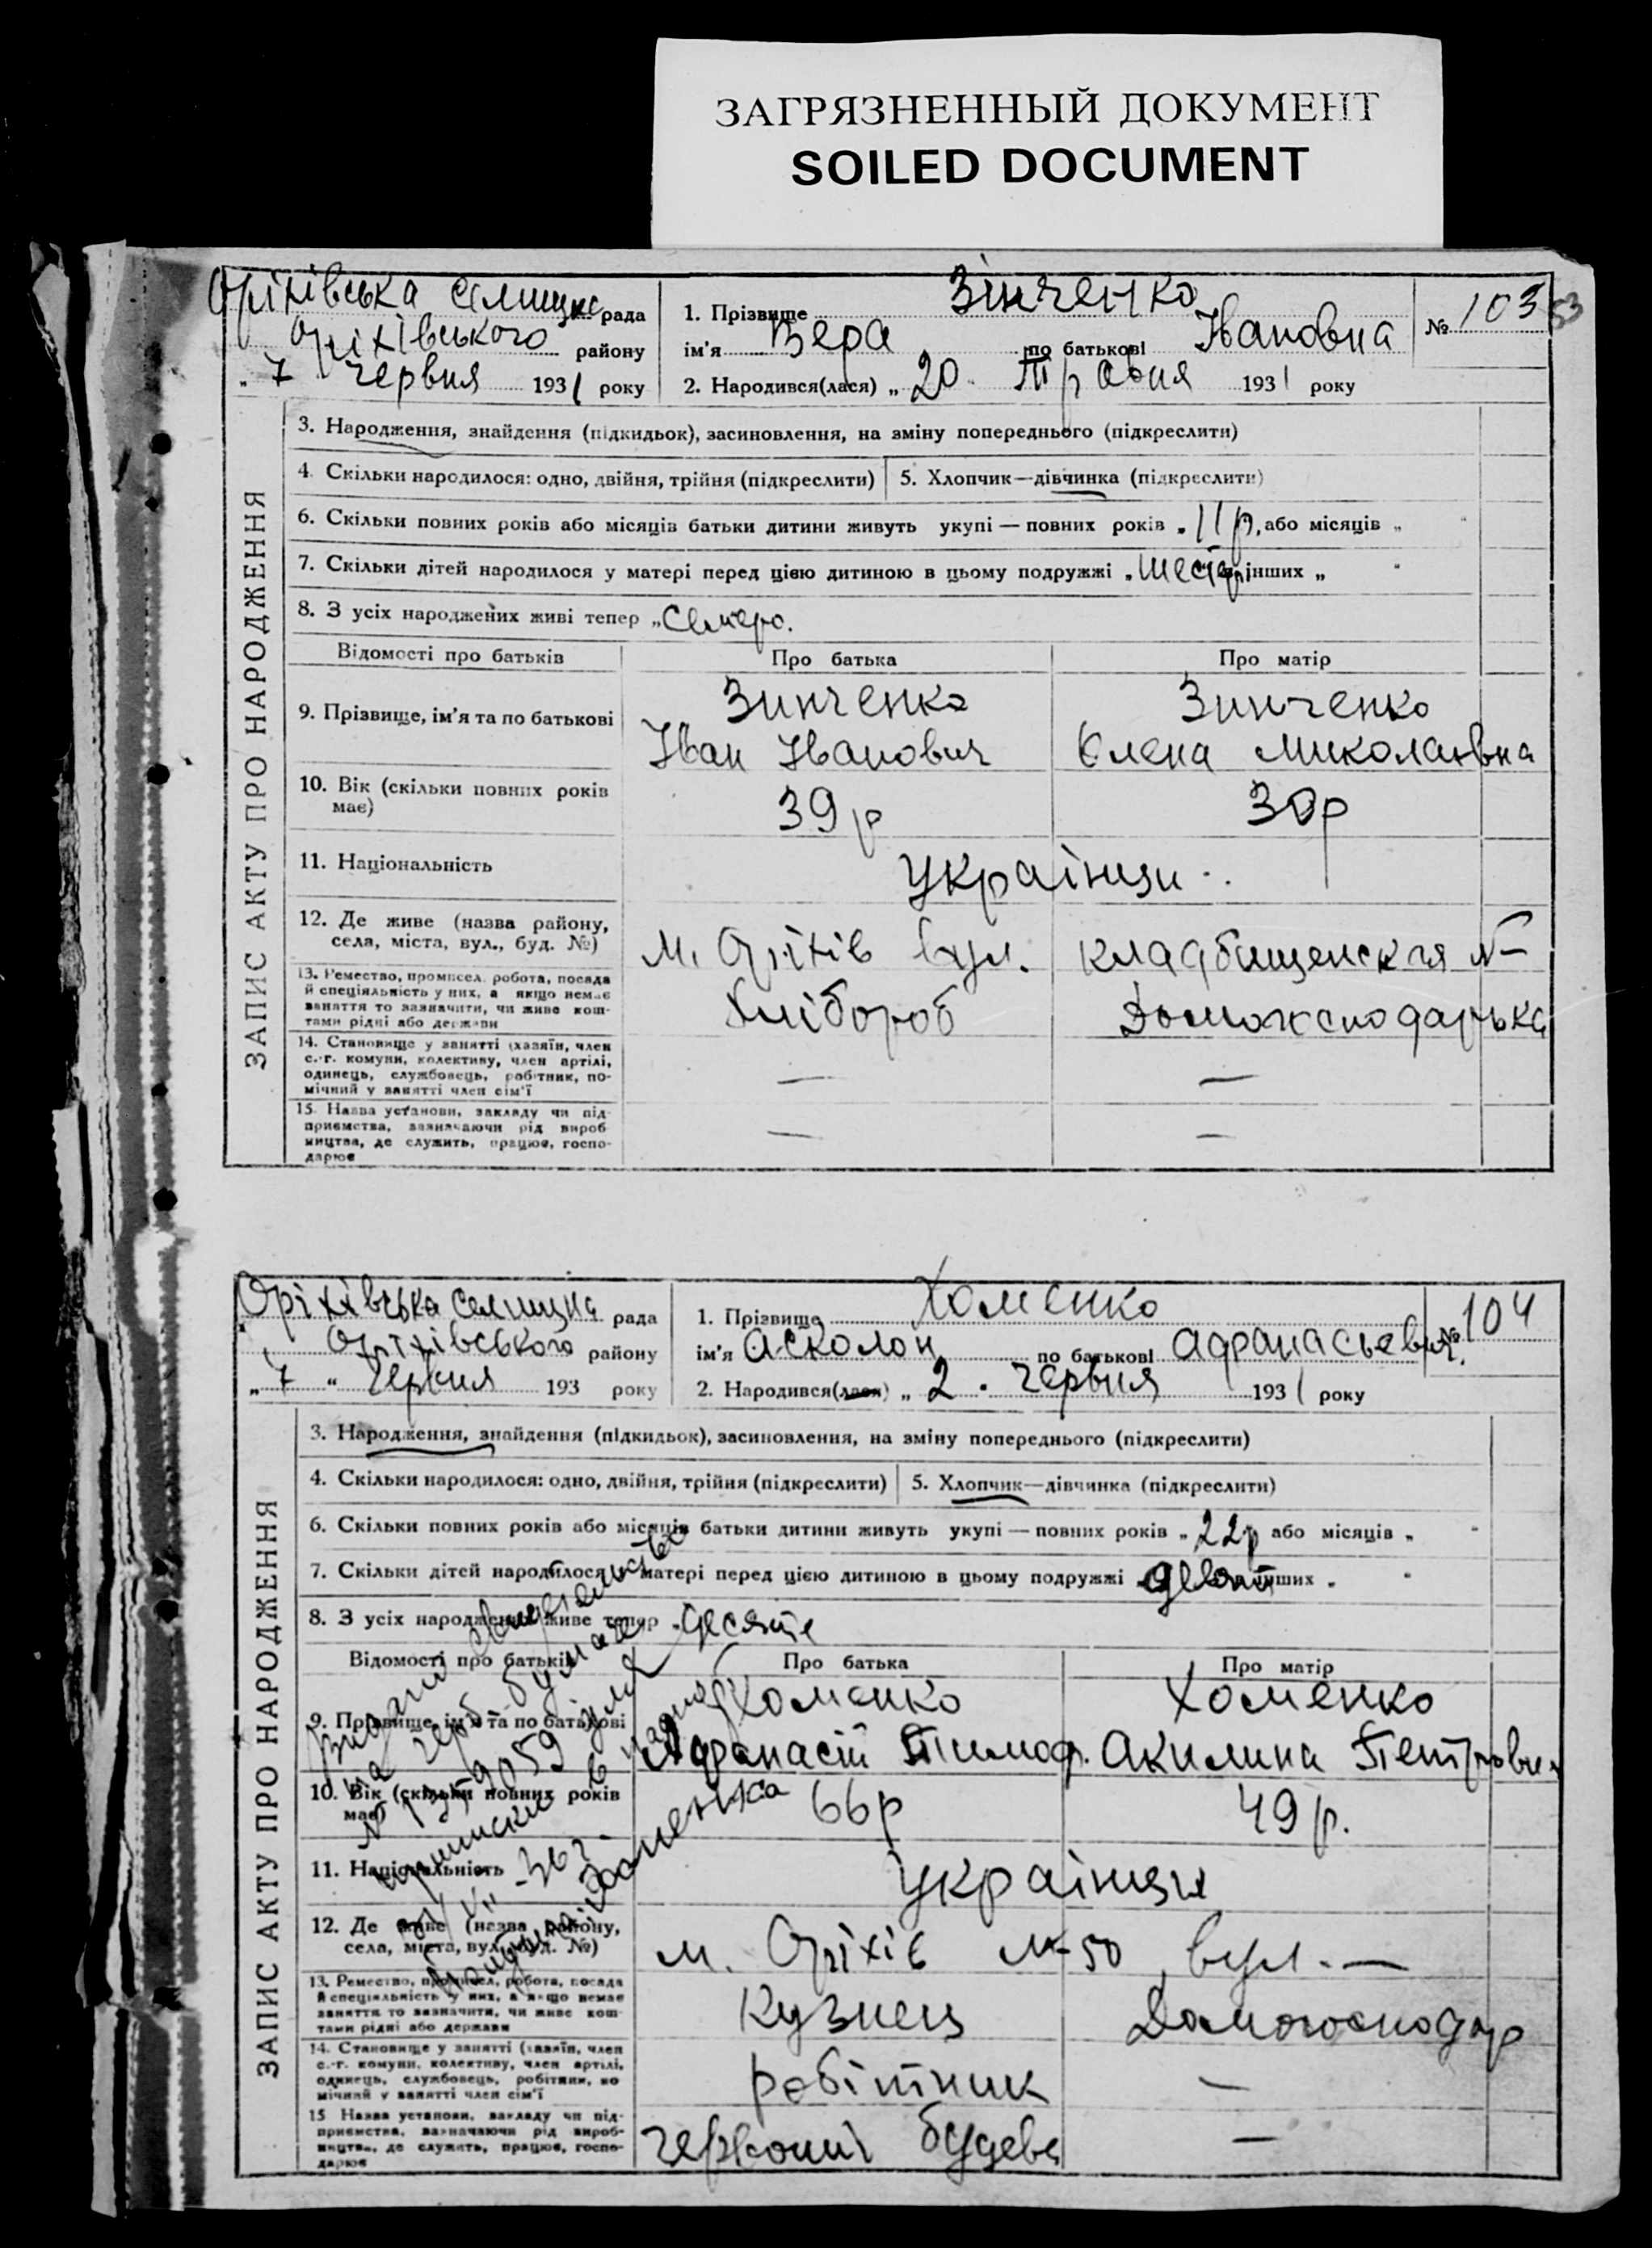 ЗАГРЯЗНЕННЫЙ ДОКУМЕНТ
SOILED DOCUMENT
Оріхівська селищна рада
Оріхівського району
„ 7 " Червня 1931 року
1. Прізвище Зінченко
ім'я Вера по батькові Івановна
№ 103
53
2. Народився(лася) „ 20 Травня 1931 року
ЗАПИС АКТУ ПРО НАРОДЖЕННЯ
3. Народження, знайдення (підкидьок), засиновлення, на зміну попереднього (підкреслити)
4. Скільки народилося: одно, двійня, трійня (підкреслити) 5. Хлопчик—дівчинка (підкреслити)
6. Скільки повних років або місяців батьки дитини живуть укупі — повних років „ 11 р, або місяців „ "
7. Скільки дітей народилося у матері перед цією дитиною в цьому подружжі „ інших „ "
8. З усіх народжених живі тепер „ Семеро.
Відомості про батьків Про батька Про матір
9. Прізвище, ім'я та по батькові Зинченко Зинченко
Іван Іванович Єлена Миколаевна
10. Вік (скільки повних років має) 39 р 30 р
11. Національність Українци
12. Де живе (назва району, села, міста, вул., буд. №) м. Оріхів вул. кладбищенская №—
13. Ремество, промисел, робота, посада й спеціяльність у них, а якщо немає заняття то зазначити, чи живе коштами рідні або держави Хлібороб Домохсподарька
14. Становище у занятті (хазяїн, член с.-г. комуни, колективу, член артілі, одинець, службовець, робітник, помічний у занятті член сім'ї — —
15. Назва установи, закладу чи підприємства, зазначаючи рід виробництва, де служить, працює, господарює — —
Оріхівська селищна рада
Оріхівського району
„ 7 " Червня 193 року
1. Прізвище Хоменко
ім'я Асколон по батькові Афанасьевич.
№ 104
2. Народився(лася) „ 2 " Червня 1931 року
ЗАПИС АКТУ ПРО НАРОДЖЕННЯ
3. Народження, знайдення (підкидьок), засиновлення, на зміну попереднього (підкреслити)
4. Скільки народилося: одно, двійня, трійня (підкреслити) 5. Хлопчик—дівчинка (підкреслити)
6. Скільки повних років або місяців батьки дитини живуть укупі — повних років „ 22 р або місяців „ "
7. Скільки дітей народилося у матері перед цією дитиною в цьому подружжі „ інших „ "
8. З усіх народжених живе тепер „ десяте
Відомості про батьків Про батька Про матір
9. Прізвище, ім'я та по батькові Хоменко Хоменко
Афанасій Тимоф. Акилина Петровн
10. Вік (скільки повних років має) 66 р 49 р.
11. Національність Українци
12. Де живе (назва району, села, міста, вул., буд. №) м. Оріхів №-50 вул. —
13. Ремество, промисел, робота, посада й спеціяльність у них, а якщо немає заняття то зазначити, чи живе коштами рідні або держави Кузнец Домогосподар
14. Становище у занятті (хазяїн, член с.-г. комуни, колективу, член артілі, одинець, службовець, робітник, помічний у занятті член сім'ї робітник —
15. Назва установи, закладу чи підприємства, зазначаючи рід виробництва, де служить, працює, господарює —